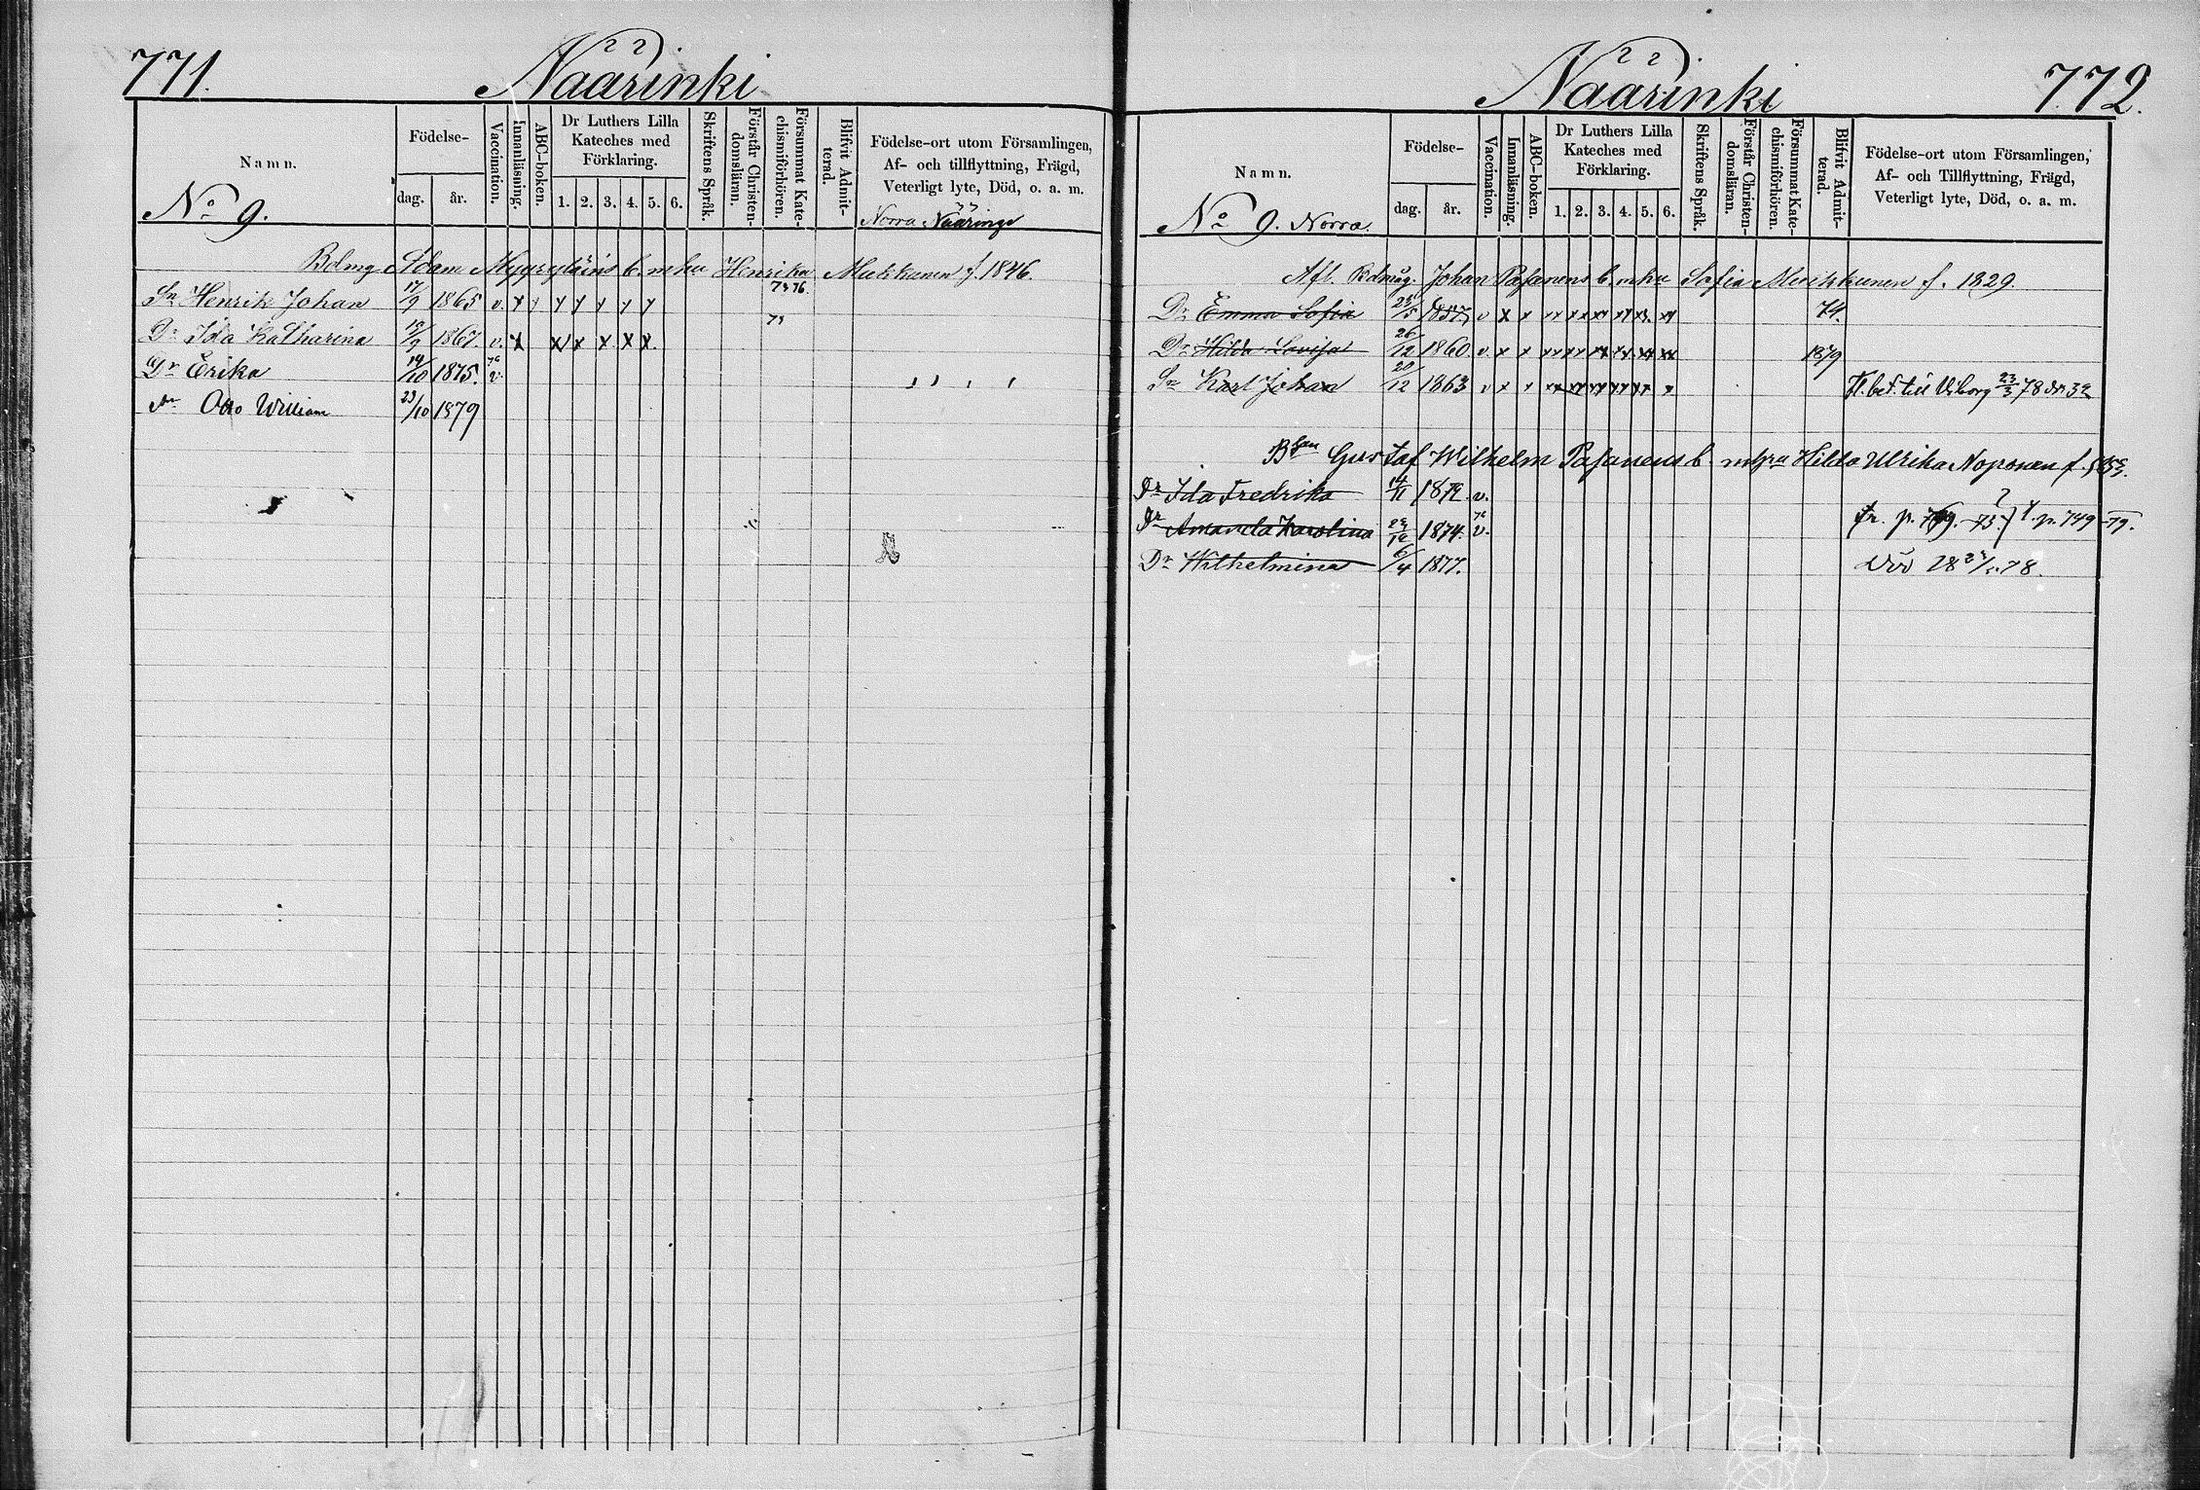 771.
Näärinki
Namn.
Födelse-
dag.
år.
Vaccination.
Innanläsning.
ABC-boken.
Dr Luthers Lilla
Kateches med
Förklaring.
1. 2. 3. 4. 5. 6.
Skriftens Språk.
Förstår Christen-
domsläran.
Försummat Kate-
chismiförhören.
Blifvit Admit-
terad.
Födelse-ort utom Församlingen,
Af- och tillflyttning, Frägd,
Veterligt lyte, Död, o. a. m.
No 9.
Norra Nääringi
Bdmg Adam Myyryläins b. m hu Henrika Mukkanen f. 1846.
Sn Henrik Johan 17/9 1865 v. x x x x x x x 73 76.
Dr Ida Katharina 1867. v. x x x x x x 73
Dr Erika 19/10 1875. 76 v.
Sn Otto William 23/10 1879
772.
Näärinki
Namn.
Födelse-
dag.
år.
Vaccination.
Innanläsning.
ABC-boken.
Dr Luthers Lilla
Kateches med
Förklaring.
1. 2. 3. 4. 5. 6.
Skriftens Språk.
Förstår Christen-
domsläran.
Försummat Kate-
chismiförhören.
Blifvit Admit-
terad.
Födelse-ort utom Församlingen,
Af- och Tillflyttning, Frägd,
Veterligt lyte, Död, o. a. m.
No 9. Norra.
Afl. Bdmåg. Johan Pasanens b. m hu Sofia Muikkunen f. 1829
Dr Emma Sofia 1857, v x x xx xx xx xx xx xx 74.
Dr Hilda Lovisa 26/12 1860. v. x x xx xx xx xx xx xx 1879
Sn Karl Johan 20/12 1863 v x x xx xx xx xx xx x Fl. bet. till Viborg 23/3 78 No 32
Bson Gustaf Wilhelm Pasanens b. m hu Hilda Ulrika Noponen f.
Dr Ida Fredrika 14/11 1872. v.
Dr Amanda Karolina 1874. 76 v. fr. p. 73. p. 749 -79.
Dr Wilhelmina 6/4 1877. Död 78.